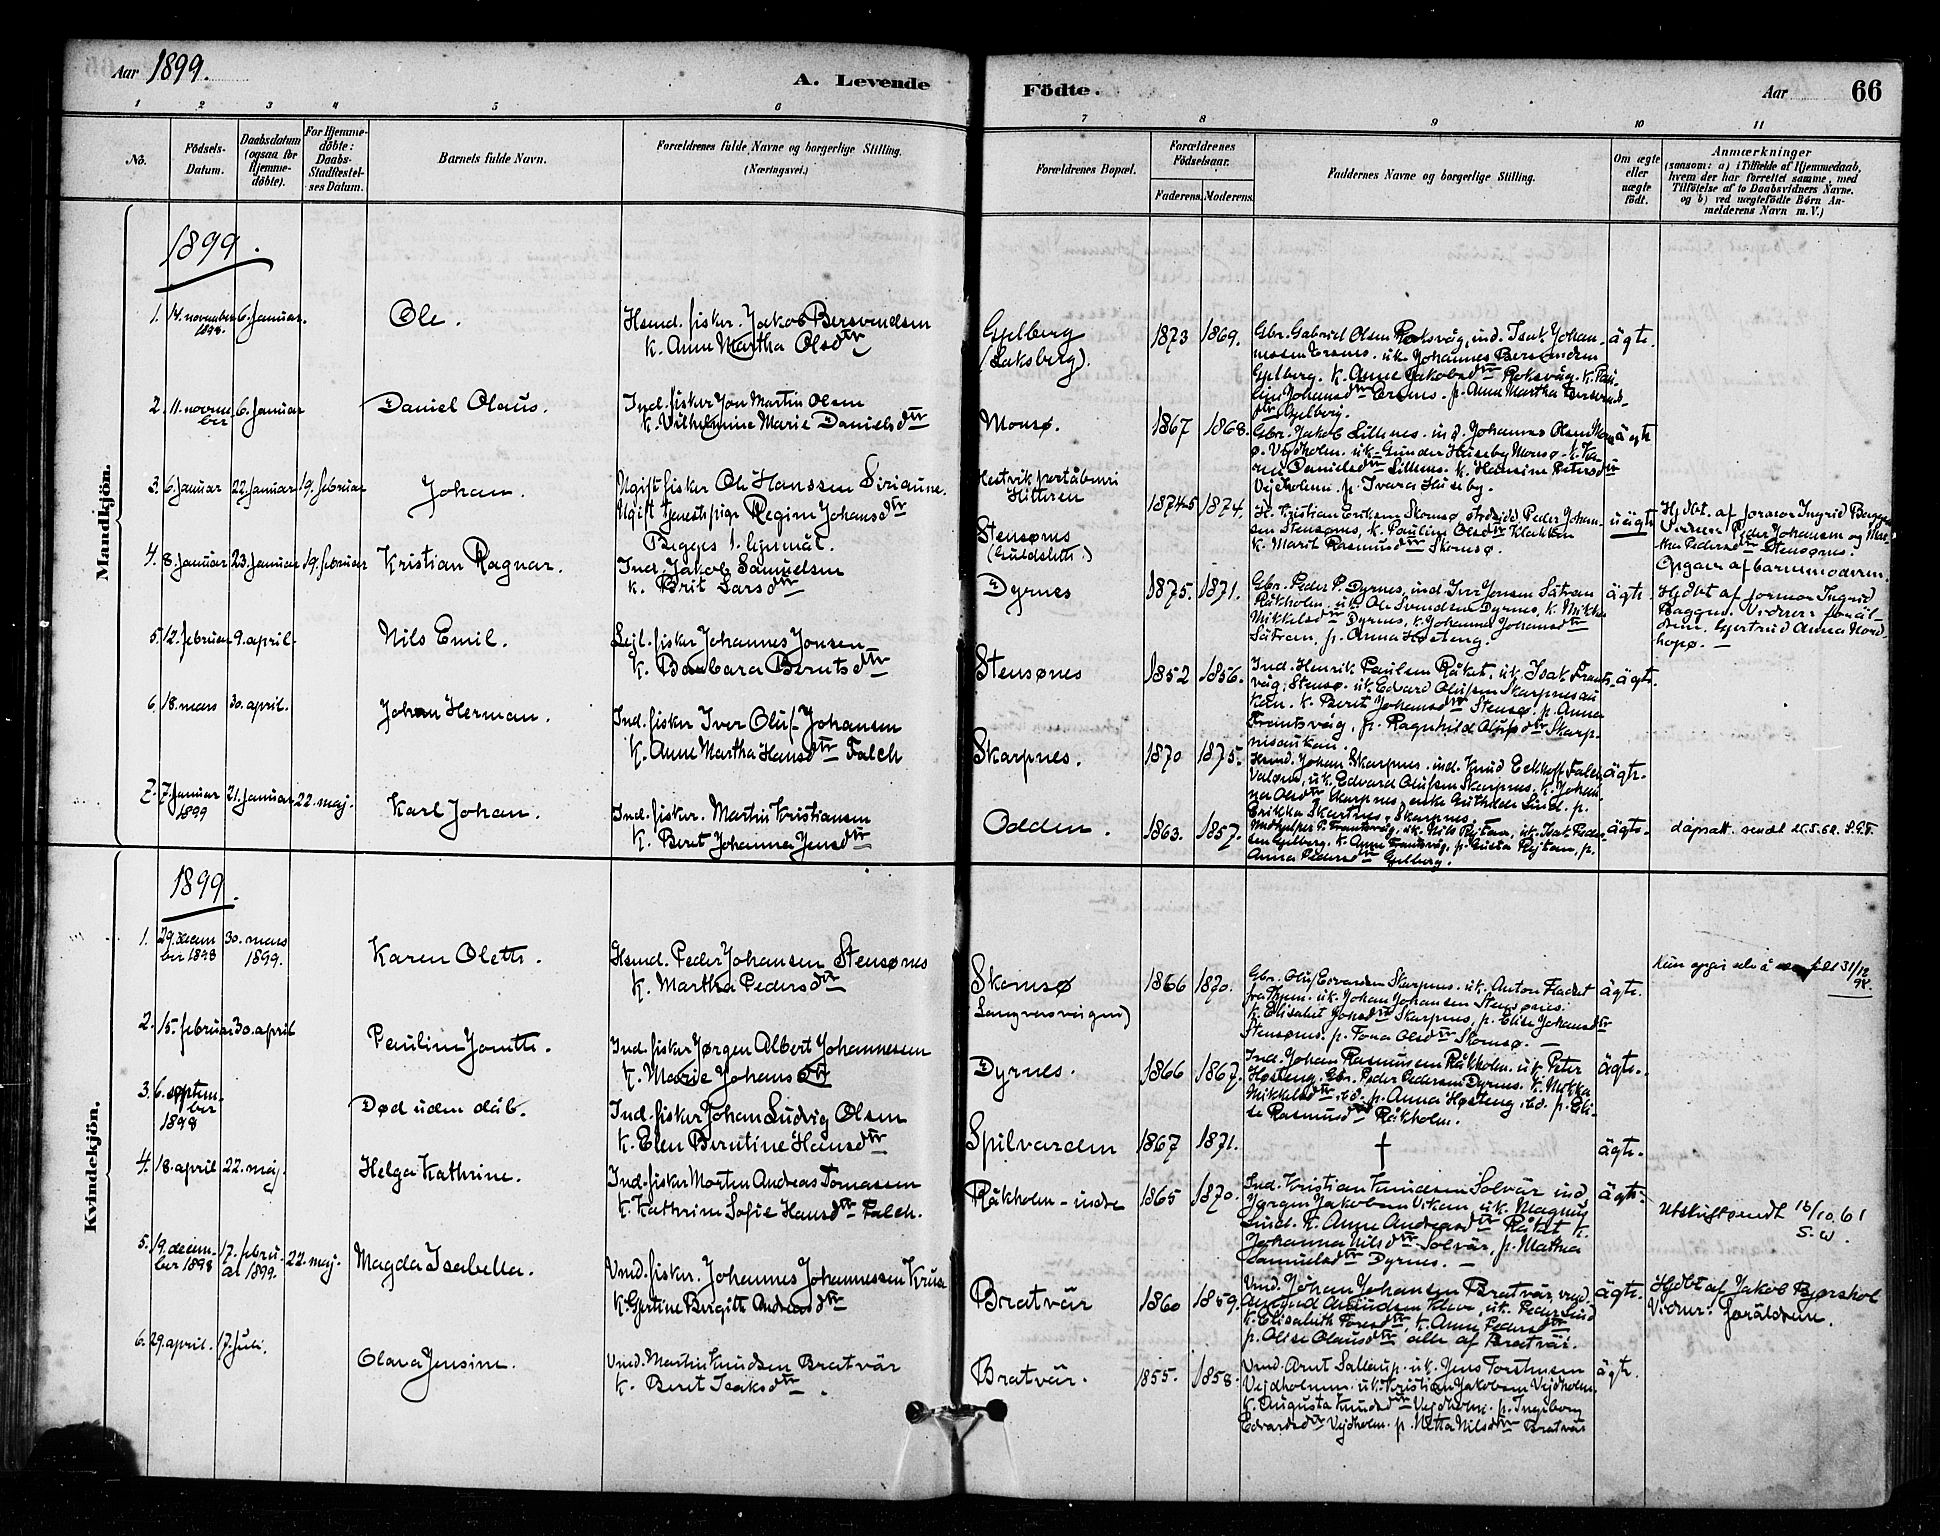 Aar 1899.
A. Levende
Födte.
Aar
66
1 2 3 4 5 6 7 8 9 10 11
No.
Födsels-Datum.
Daabsdatum (ogsaa for Hjemme-döbte).
For Hjemme-döbte: Daabs-Stadfæstel-ses Datum.
Barnets fulde Navn.
Forældrenes fulde Navne og borgerlige Stilling. (Næringsvei.)
Forældrenes Bopæl.
Forældrenes Födselsaar.
Faderens. Moderens.
Faddernes Navne og borgerlige Stilling.
Om ægte eller uægte födt.
Anmærkninger
(saasom: a) i Tilfælde af Hjemmedaab,
hvem der har forrettet samme, med
Tilföielse af to Daabsvidners Navne,
og b) ved uægtefödte Börn An-
melderens Navn m. V.)
Mandkjön.
1899.
1. 14. november 1898. 6. januar. Ole.
Hsmd. fisker. Jakob Bersvendsen
K. Anne Martha Olsdtr
Gjelberg (Laksberg).
1873 1869.
Gbr. Gabriel Olsen Roksvåg, ind. Isak Johan-
nessen Ersnes. uk. Johannes Bersvendsen
Gjelberg. K. Anne Jakobsdtr Roksvåg. K. Pau-
line Johansdtr Ersnes. p. Anne Martha Bersvend-
dtr. Gjelberg.
ägte.
2. 11. novem ber 6. januar Daniel Olaus.
Ind. fisker Jon Martin Olsen
K. Vilhelmine Marie Danielsdtr
Monsø.
1867 1868.
Gbr. Jakob Lillenes. ind. Johannes Olsen
ø. Vejdholm. uk. Gunder Huseby Monsø.
Danielsdtr Lillenes. K. Hansine Petersdtr
Vejdholmen. p. Ivara Huseby.
ägte
3. 6. januar 22. januar 19. februar Johan.
Ugift fisker Ole Hanssen Siriaune.
Ugift tjenestepige Regine Johansdtr
Begges 1. lejermål.
Hestvik
Hitteren
Stensønes
(Guldsletts.)
1874-5 1874.
H. Kristian Eriksen Skomsø Peder Johan-
sen Stensønes, K. Pauline Olsdtr Klakken
K. Marit Rasmusdtr Skomsø.
uägte
Hjdbt. af jormor Ingrid Baggen
Vidner: Peder Johansen og Mar-
tha Pedersdtr Stensønes.
Opgaer af barnemoderen.
4. 8. januar 23. januar 19. februar Kristian Ragnar.
Ind. Jakob Samuelsen
K. Brit Larsdtr
Dyrnes
1875. 1871.
Gbr. Peder P. Dyrnes, ind. Iver Jonsen Sätran
Råkholm. uk. Ole Svendsen Dyrnes. K. Mikka
Mikkelsdtr Dyrnes, K. Johanna Johansdtr
Sätran, p. Anna Høsteng.
ägte
Hjdbt af jormor Ingrid
Baggen. Vidner: foräl-
drene, Gjertrud Anna Nord
hopø.
5. 12. februar 9. april. Nils Emil.
Lejl. fisker Johannes Jonsen
K. Barbara Berntsdtr
Stensønes
1852 1856.
Ind. Henrik Paulsen Råket, uk. Isak Frants-
våg, Stensø. uk. Edvard Olufsen Skarpnesau
kan. K. Berit Johansdtr Stensø, p. Anna
Frantsvåg, p. Ragnhild Olufsdtr Skarp-
nesaukan.
ägte.
6. 18. mars 30. april. Johan Herman.
Ind. fisker Iver Oluf Johansen
K. Anne Martha Hansdtr Falch
Skarpnes.
1870 1875.
Hsmd. Johan Skarpnes. ind. Knud Eckhoff Falch
Valøens, uk. Edvard Olufsen Skarpnes. K. Johan-
na Olsdtr Skarpnes, enke Guthilde Lind. p.
Erikka Skarpnes, Skarpnes.
ägte.
7. 7. januar 1899 21. januar 22. maj. Karl Johan.
Ind. fisker. Martin Kristiansen
K. Berit Johanna Jensdtr
Odden.
1863. 1857.
Medhjelper P. Frantsvåg, uk. Nils Rejtan, uk. Isak Peder-
sen Gjelberg. K. Anne Frantsvåg, p. Gusta Rejtan, p.
Anna Pedersdtr Gjelberg.
ägte.
dåpsatt. sendt 25.5.62.
Kvindekjön.
1899.
1. 29. decem ber 1898 30. mars 1899. Karen Olette.
Hsmd. Peder Johansen Stensønes
K. Martha Pedersdtr
Skomsø
Langversvågen)
1866 1870.
Gbr. Oluf Edvardsen Skarpnes. uk. Anton Flacket
fra Hjem. uk. Johan Johansen Stensønes.
K. Elisabet Johsdtr Skarpnes, p. Elise Johansdtr
Stensønes. p. Fona Olsdtr Skomsø.
ägte.
Hun opgir selv å født 31/12 98.
2. 15. februar 30. april Pauline Jonette.
Ind. fisker Jørgen Albert Johannesen
K. Marie Johansdtr
Dyrnes.
1866 1867.
Ind. Johan Rasmussen Råkholm. uk. Peter
Høsteng. Gbr. Peder Pedersen Dyrnes. K. Mikka
Mikkelsdtr, ibd. p. Anna Høsteng, ibd. p. Eli-
se Rasmusdtr Råkholm.
ägte.
3. 6. septem-ber 1898 Død uden dåb.
Ind. fisker Johan Ludvig Olsen
K. Elen Berntine Hansdtr
Spilvarden
1867 1871.
†
ägte.
4. 18. april 22. maj. Helga Kathrine.
Ind. fisker Morten Andreas Tomassen
K. Kathrine Sofie Hansdtr Falch.
Råkholm-indre
1865 1870.
Ind. Kristian Knudsen Solvär ind.
Jørgen Jakobsen Vikan, uk. Magnus
Lind. K. Anne Andreasdtr Råket K.
Johanna Nilsdtr Solvär, p. Mathea
Samuelsdtr Dyrnes.
ägte.
Utskrift sendt 16/10. 61
S.W.
5. 19. decem-ber 1898 17. febru-ar 1899. 22. maj. Magda Isabella.
Vmd. fisker. Johannes Johannessen Kruse
K. Gjertine Birgitte Andreasdtr
Bratvär
1860 1859.
Vmd. Johan Johansen Bratvär, vmd.
Amund Amundsen Kleve, uk. Peder Lind
K. Elisabeth Toresdtr, K. Anne Pedersdtr
p. Olise Olausdtr alle af Bratvär.
ägte.
Hjdbt af Jakob Bjørshol
Vidner: forældrene.
6. 29. april. 17. juli. Olava Jensine.
Vmd. Martin Knudsen Bratvär
K. Berit Isaksdtr.
Bratvär.
1855. 1858.
Vmd. Arnt Sallaup. uk. Jens Torstensen
Vejdholmen. uk. Kristian Jakobsen Vejdholm.
K. Augusta Knudsdtr Vejdholm. p. Ingeborg
Edvardsdtr Vejdholm. p. Netta Nilsdtr Bratvär
ägte.